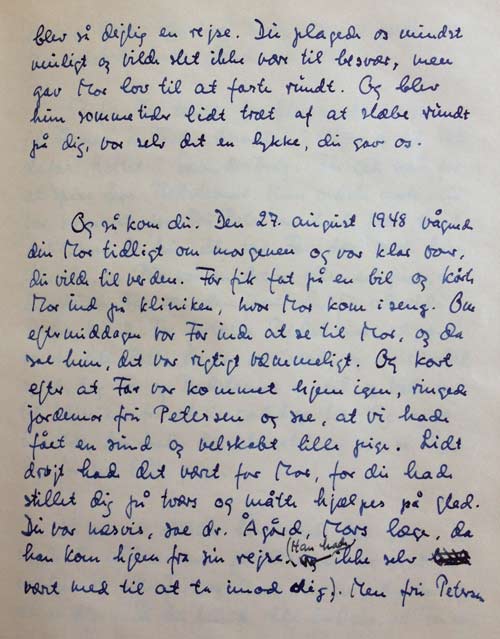 blev så dejlig en rejse. Du plagede os mindst
muligt og vilde slet ikke være til besvær, men
gav Mor lov til at farte rundt. Og blev
hun sommetider lidt træt af at slæbe rundt
på dig, var selv det en lykke, du gav os.
Og så kom du. Den 27. august 1948 vågnede
din Mor tidligt om morgenen og var klar over,
du vilde til verden. Far fik fat på en bil og kørte
Mor ind på kliniken, hvor Mor kom i seng. Om
eftermiddagen var Far inde at se til Mor, og da
sae hun, det var rigtigt væmmeligt. Og kort
efter at Far var kommet hjem igen, ringede
jordemor fru Petersen og sae, at vi havde
fået en sund og velskabt lille pige. Lidt
drøjt havde det været for Mor, for du havde
stillet dig på tværs og måtte hjælpes på gled.
Du var næsvis, sae dr. Ågård, Mors læge, da
han kom hjem fra sin rejse. (Han havde ikke selv
været med til at ta imod dig). Men fru Petersen